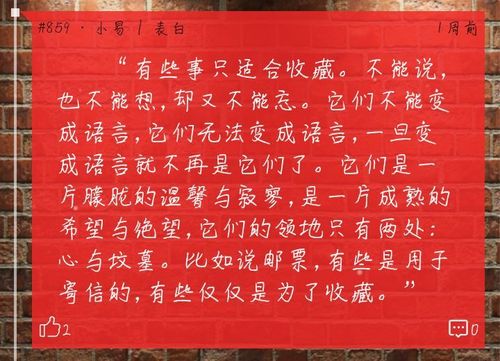 #859·小易 | 表白
1周前
“有些事只适合收藏。不能说，
也不能想，却又不能忘。它们不能变
成语言，它们无法变成语言，一旦变
成语言就不再是它们了。它们是一
片朦胧的温馨与寂寥，是一片成熟的
希望与绝望，它们的领地只有两处：
心与坟墓。比如说邮票，有些是用于
寄信的，有些仅仅是为了收藏。”
2
0